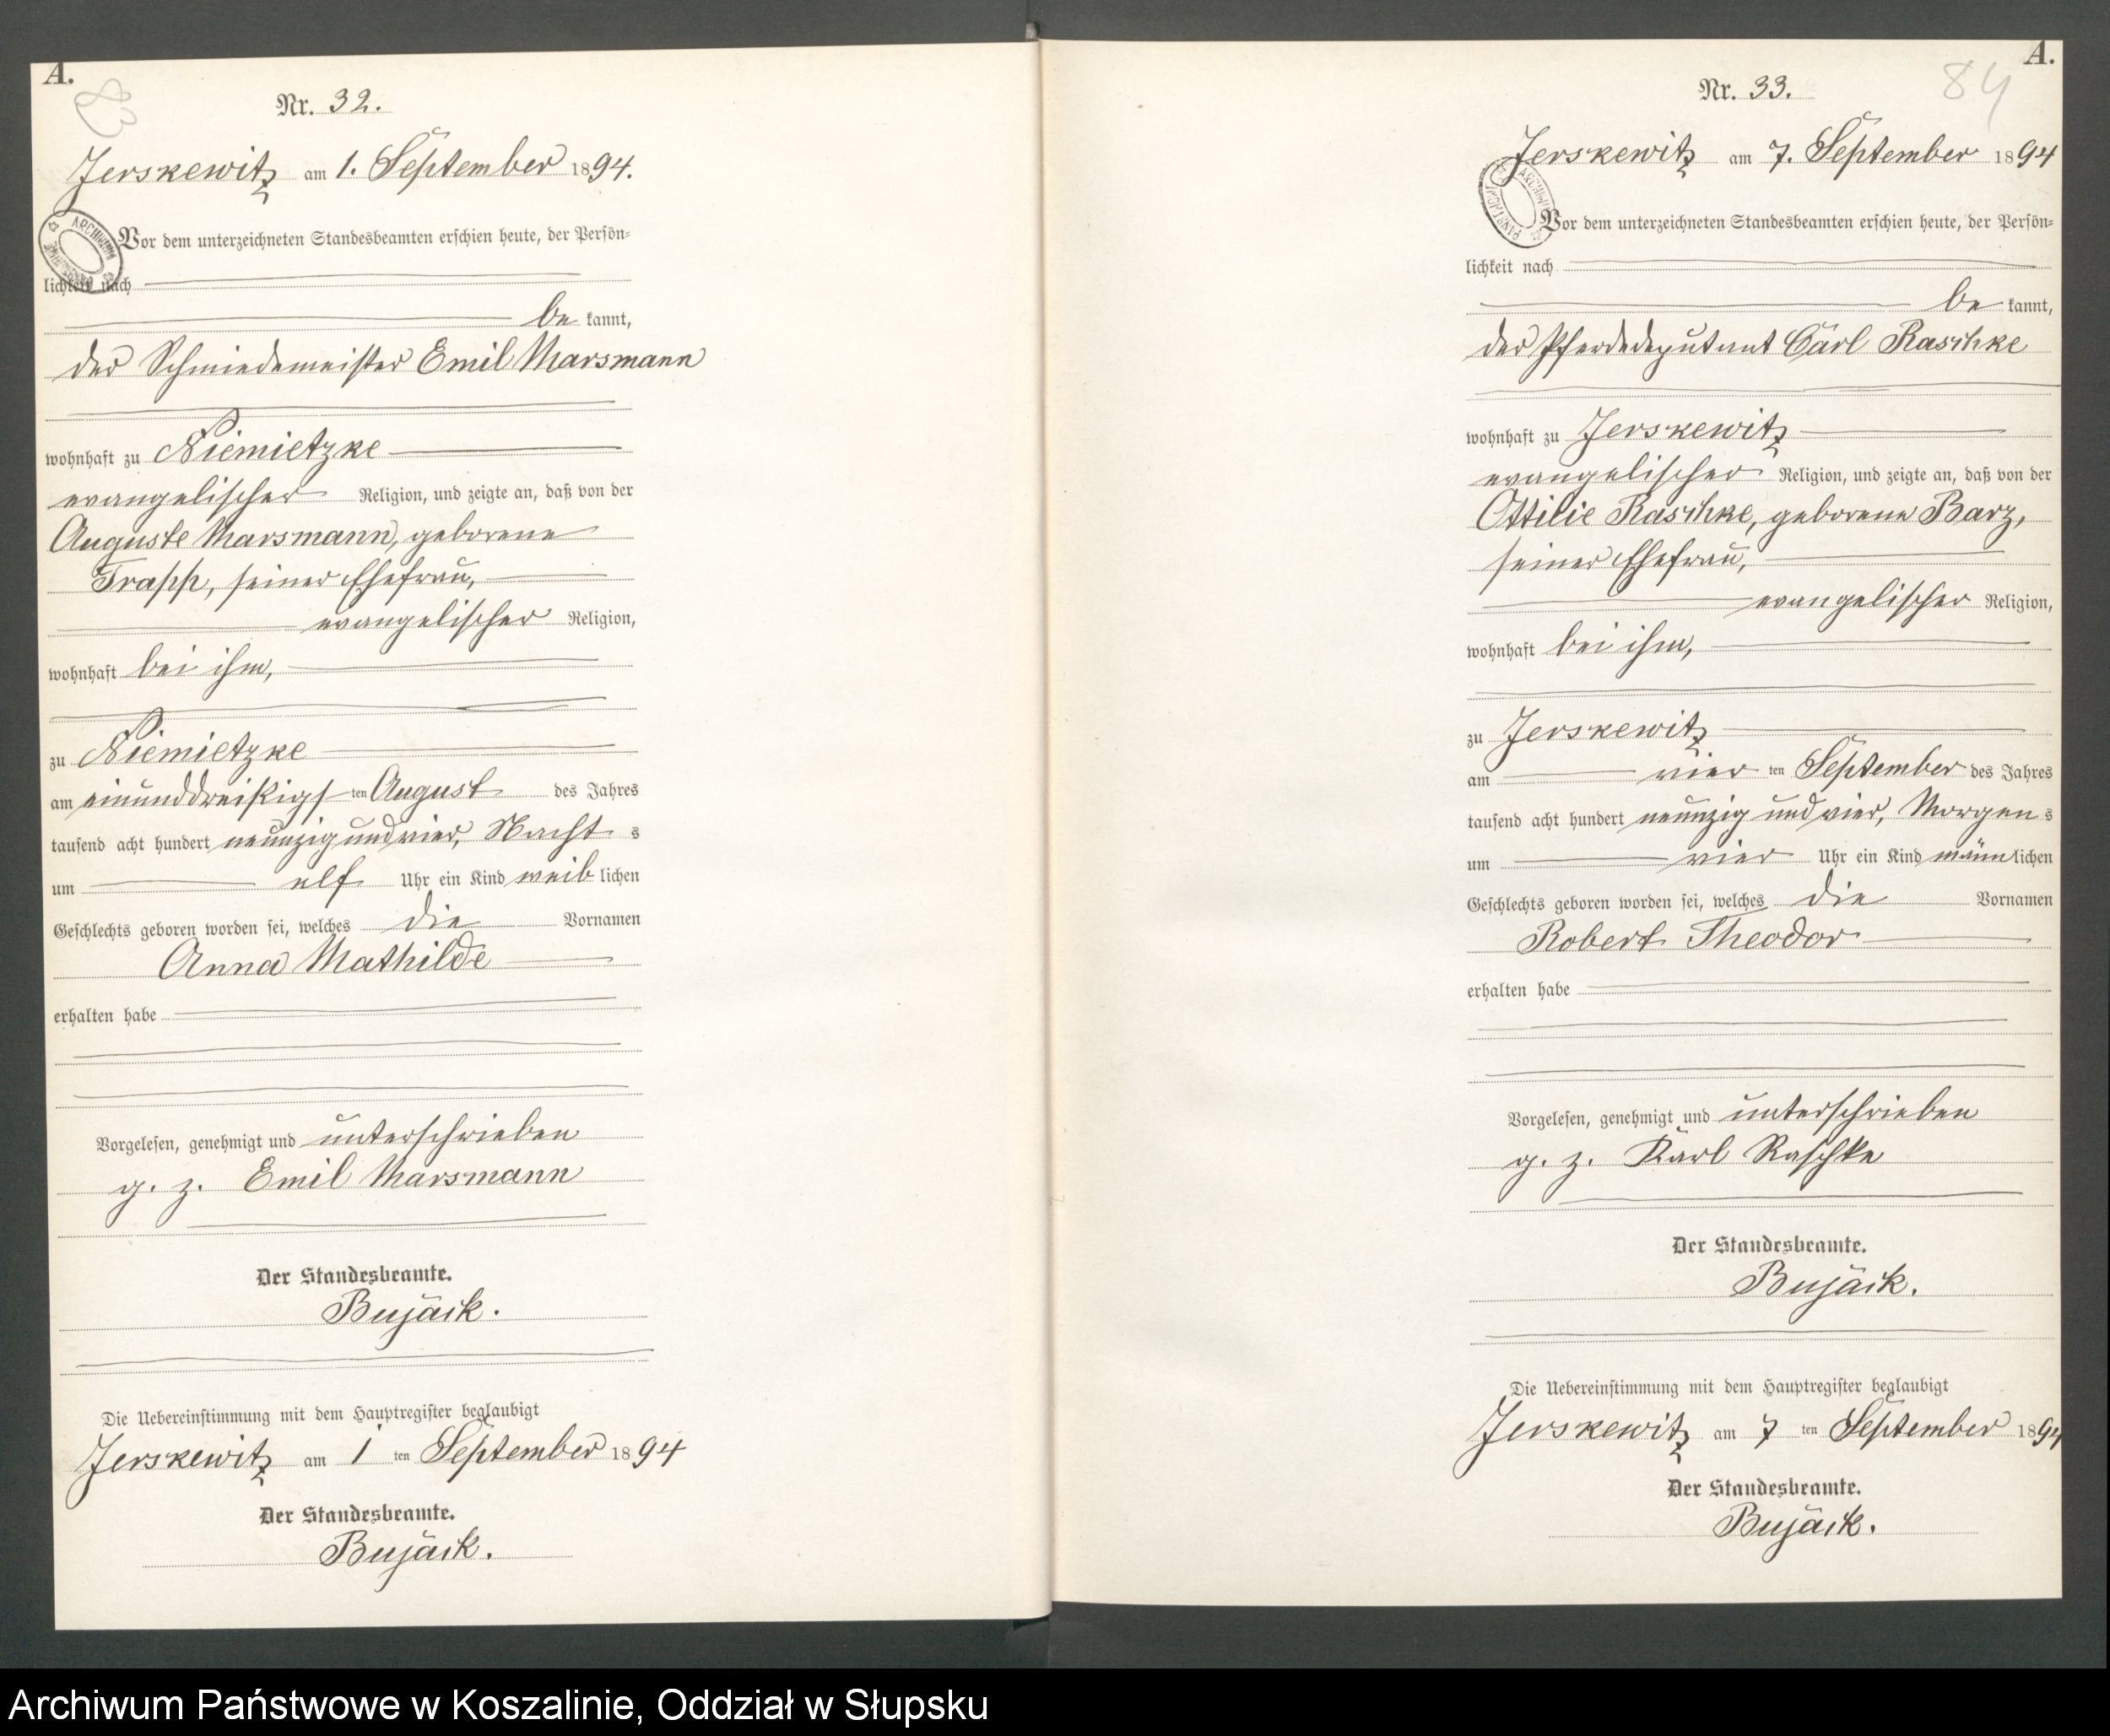 A.
83
Nr. 32.
Jerskewitz am 1. September 1894.
Vor dem unterzeichneten Standesbeamten erschien heute, der Persön-
lichkeit nach
be kannt,
der Schmiedemeister Emil Marsmann
wohnhaft zu Niemietzke
evangelischer Religion, und zeigte an, daß von der
Auguste Marsmann, geborene
Trapp, seiner Ehefrau,
evangelischer Religion,
wohnhaft bei ihm,
zu Niemietzke
am einunddreißigs ten August des Jahres
tausend acht hundert neunzig und vier, Nacht s
um elf Uhr ein Kind weib lichen
Geschlechts geboren worden sei, welches die Vornamen
Anna Mathilde
erhalten habe
Vorgelesen, genehmigt und unterschrieben
g. z. Emil Marsmann
Der Standesbeamte.
Bujack.
Die Uebereinstimmung mit dem Hauptregister beglaubigt
Jerskewitz am 1 ten September 1894
Der Standesbeamte.
Bujack.
A.
84
Nr. 33.
Jerskewitz am 7. September 1894
Vor dem unterzeichneten Standesbeamten erschien heute, der Persön-
lichkeit nach
be kannt,
der Pferdedeputant Carl Raschke
wohnhaft zu Jerskewitz
evangelischer Religion, und zeigte an, daß von der
Ottilie Raschke, geborene Barz,
seiner Ehefrau,
evangelischer Religion,
wohnhaft bei ihm,
zu Jerskewitz
am vier ten September des Jahres
tausend acht hundert neunzig und vier, Morgen s
um vier Uhr ein Kind männ lichen
Geschlechts geboren worden sei, welches die Vornamen
Robert Theodor
erhalten habe
Vorgelesen, genehmigt und unterschrieben
g. z. Karl Raschke
Der Standesbeamte.
Bujack.
Die Uebereinstimmung mit dem Hauptregister beglaubigt
Jerskewitz am 7 ten September 1894
Der Standesbeamte.
Bujack.
Archiwum Państwowe w Koszalinie, Oddział w Słupsku